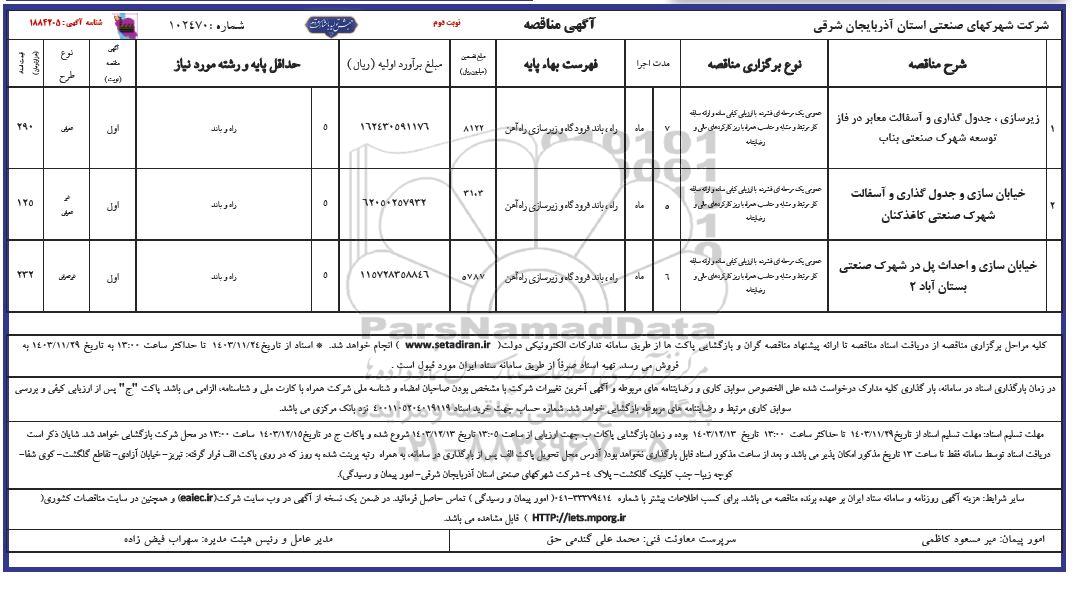 شرکت شهرکهای صنعتی استان آذربایجان شرقی
آگهی مناقصه
نوبت دوم
شماره : ۱۰۲۴۷۰
شناسه آگهی : ۱۸۸۴۲۰۵
شرح مناقصه
نوع برگزاری مناقصه
مدت اجرا
فهرست بهاء پایه
مبلغ تضمین (میلیون ریال)
مبلغ برآورد اولیه (ریال)
حداقل پایه و رشته مورد نیاز
آگهی مناقصه (نوبت)
نوع طرح
۱
زیرسازی ، جدول گذاری و آسفالت معابر در فاز
توسعه شهرک صنعتی بناب
عمومی یک مرحله ای فشرده با ارزیابی کیفی ساده و ارائه سابقه
کار مرتبط و مشابه و متناسب همراه با ریز کارکردهای مالی و
رضایتنامه
۷
ماه
راه ، باند فرودگاه و زیرسازی راه آهن
۸۱۲۲
۱۶۲۴۳۰۵۹۱۱۷۶
۵
راه و باند
اول
عمرانی
۲۹۰
۲
خیابان سازی و جدول گذاری و آسفالت
شهرک صنعتی کاغذکنان
عمومی یک مرحله ای فشرده با ارزیابی کیفی ساده و ارائه سابقه
کار مرتبط و مشابه و متناسب همراه با ریز کارکردهای مالی و
رضایتنامه
۵
ماه
راه ، باند فرودگاه و زیرسازی راه آهن
۳۱۰۳
۶۲۰۵۰۲۵۷۹۳۲
۵
راه و باند
اول
غیر عمرانی
۱۲۵
خیابان سازی و احداث پل در شهرک صنعتی
بستان آباد ۲
عمومی یک مرحله ای فشرده با ارزیابی کیفی ساده و ارائه سابقه
کار مرتبط و مشابه و متناسب همراه با ریز کارکردهای مالی و
رضایتنامه
۶
ماه
راه ، باند فرودگاه و زیرسازی راه آهن
۵۷۸۷
۱۱۵۷۲۸۳۵۸۸۴۶
۵
راه و باند
اول
غیرعمرانی
۲۳۲
ParsNamadData
کلیه مراحل برگزاری مناقصه از دریافت اسناد مناقصه تا ارائه پیشنهاد مناقصه گران و بازگشایی پاکت ها از طریق سامانه تدارکات الکترونیکی دولت( www.setadiran.ir ) انجام خواهد شد. * اسناد از تاریخ۱۴۰۳/۱۱/۲۴ تا حداکثر ساعت ۱۳:۰۰ به تاریخ ۱۴۰۳/۱۱/۲۹ به
فروش می رسد. تهیه اسناد صرفاً از طریق سامانه ستاد ایران مورد قبول است .
در زمان بارگذاری اسناد در سامانه، بار گذاری کلیه مدارک درخواست شده علی الخصوص سوابق کاری و رضایتنامه های مربوطه و آگهی آخرین تغییرات شرکت با مشخص بودن صاحبان امضاء و شناسه ملی شرکت همراه با کارت ملی و شناسنامه، الزامی می باشد. پاکت "ج" پس از ارزیابی کیفی و بررسی
سوابق کاری مرتبط و رضایتنامه های مربوطه بازگشایی خواهد شد. شماره حساب جهت خرید اسناد ۴۰۰۱۱۰۵۲۰۴۰۱۹۱۱۹ نزد بانک مرکزی می باشد.
مهلت تسلیم اسناد: مهلت تسلیم اسناد از تاریخ۱۴۰۳/۱۱/۲۹ تا حداکثر ساعت ۱۳:۰۰ تاریخ ۱۴۰۳/۱۲/۱۳ بوده و زمان بازگشایی پاکات ب جهت ارزیابی از ساعت ۱۳:۰۵ تاریخ ۱۴۰۳/۱۲/۱۳ شروع شده و پاکات ج در تاریخ۱۴۰۳/۱۲/۱۵ ساعت ۱۳:۰۰ در محل شرکت بازگشایی خواهد شد. شایان ذکر است
دریافت اسناد توسط سامانه فقط تا ساعت ۱۳ تاریخ مذکور امکان پذیر می باشد و بعد از ساعت مذکور اسناد قابل بارگذاری نخواهد بود( آدرس محل تحویل پاکت الف پس از بارگذاری در سامانه، به همراه رتبه پرینت شده به روز که در روی پاکت الف قرار گرفته: تبریز- خیابان آزادی- تقاطع گلگشت- کوی شفا-
کوچه زیبا- جنب کلینیک گلگشت- پلاک ۴- شرکت شهرکهای صنعتی استان آذربایجان شرقی- امور پیمان و رسیدگی).
سایر شرایط: هزینه آگهی روزنامه و سامانه ستاد ایران بر عهده برنده مناقصه می باشد. برای کسب اطلاعات پیشتر با شماره ۳۳۳۷۹۴۱۴-۰۴۱( امور پیمان و رسیدگی ) تماس حاصل فرمائید. در ضمن یک نسخه از آگهی در وب سایت شرکت(eaiec.ir) و همچنین در سایت مناقصات کشوری(
HTTP://iets.mporg.ir ) قابل مشاهده می باشد.
امور پیمان: میر مسعود کاظمی
سرپرست معاونت فنی: محمد علی گندمی حق
مدیر عامل و رئیس هیئت مدیره: سهراب فیض زاده